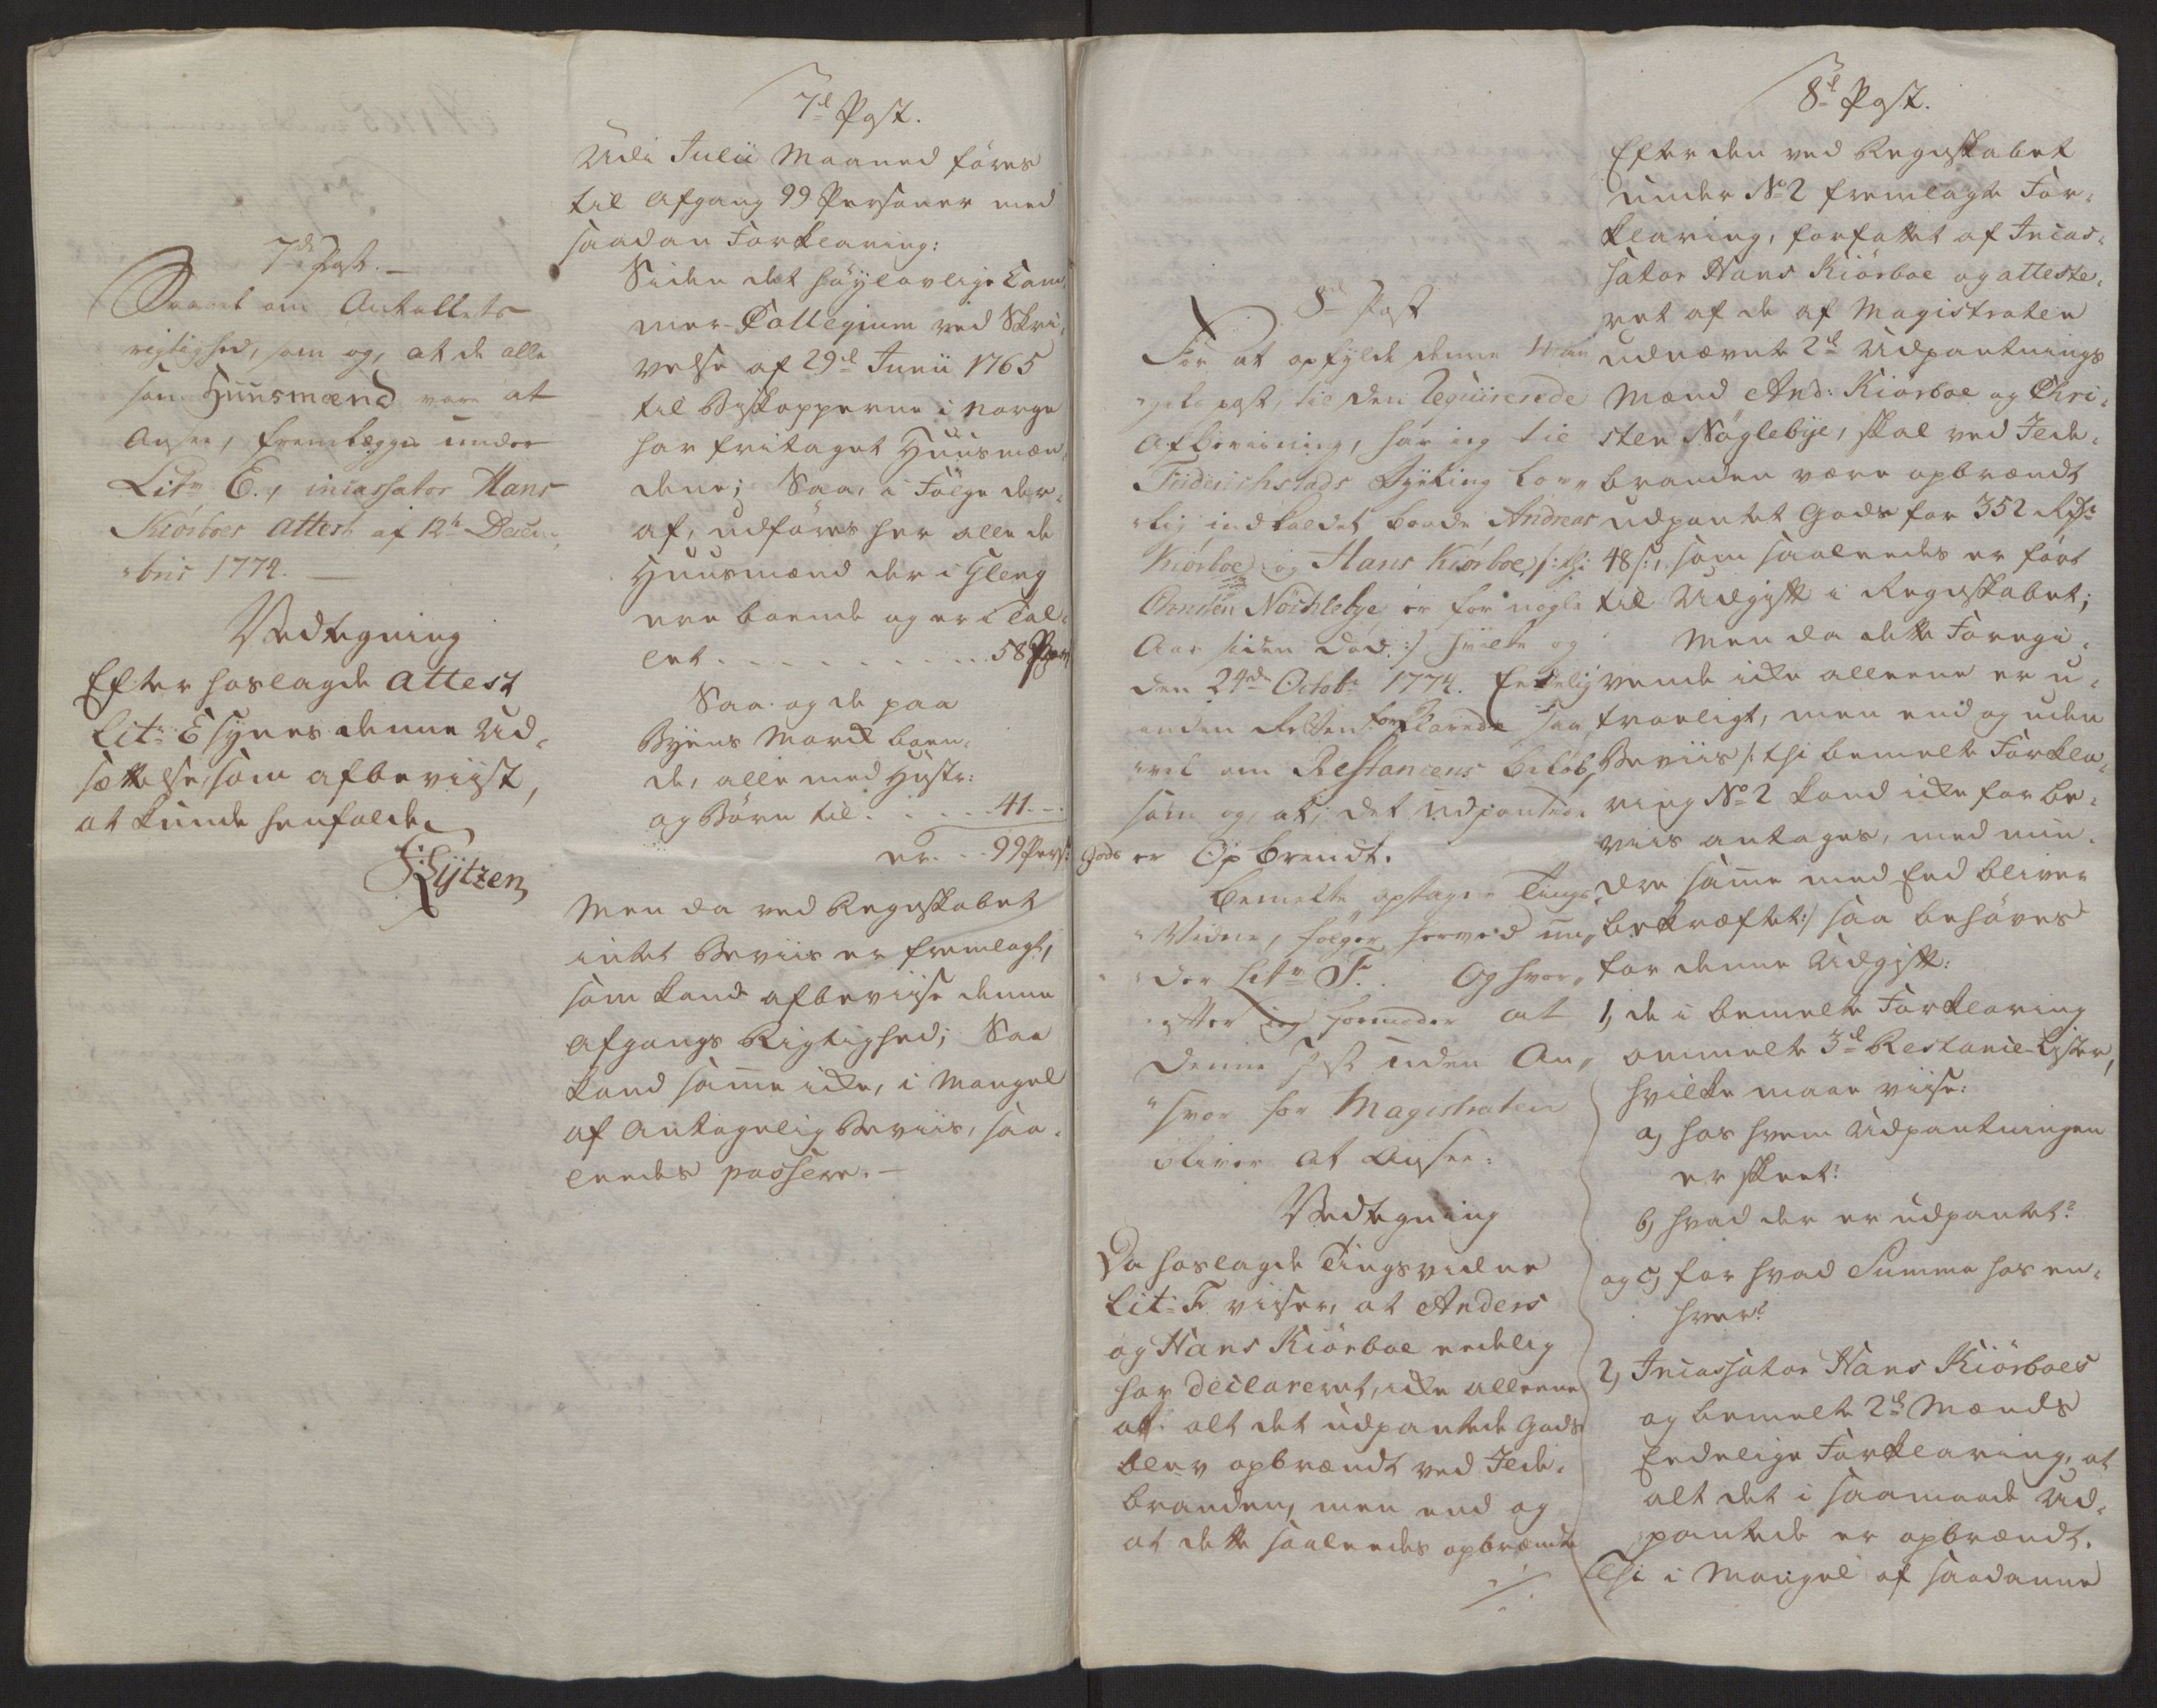 7de Post.
Svaret om Antallets
rigtighed, som og, at de alle
som Huusmænd vare at
Ansee, fremlægges under
Litr. E., incassator Hans
Kiörboes attest af 12te Decem-
bris 1774.
Vedtegning
Efter hoslagde Attest
Litr: E synes denne Ud-
sættelse, som afbeviist,
at kunde henfalde.
Lytzen
7de Post.
Udi Julii Maaned föres
til Afgang 99 Personer med
saadan Forklaring:
Siden det höylovlige Cam-
mer-Collegium ved Skri-
velse af 29de Junii 1765
til Biskopperne i Norge
har fritaget Huusmæn-
dene; Saa, i Fölge der-
af, udföres her alle de
Huusmænd der i Gleng
ere boende og er i Tal-
let . . . . . . . . . . 58 Pers:
Saa og de paa
Byens Marck boen-
de, alle med Hustr:
og Börn til . . . . . 41. -
er. . . 99 Pers:
Men da ved Regnskabet
intet Beviis er fremlagt,
som kand afbeviise denne
Afgangs Rigtighed; Saa
kand samme icke, i Mangel
af Antagelig Beviis, saa-
leedes passere. -
8de Post
For at opfylde denne Man-
gels post, til den requirerede
Afbeviisning, har ieg til
Friderichstads Byeting lov-
lig indkaldet baade Andreas
Kiörboe, og Hans Kiörboe /: thi
Christen Nöchlebye er for nogle
Aar siden död :/ hvilke og
den 24de Octobr 1774. Eedelig
forklarede saa-
vel om Restancens belöb,
som og, at, det udpantede
Gods er Opbrendt.
bemelte optagne Tings-
Vidne, fölger herved un-
der Litr F. Og hvor-
efter ieg formoder at
denne Post uden An-
svar for Magistraten
bliver at Ansee.
Vedtegning
Da hoslagde Tingsvidne
Litr: F. viiser, at Anders
og Hans Kiörboe eedelig
har declareret, icke alleene
at alt det udpantede Gods
blev opbrændt ved Ilde-
branden, men end og
at dette saaleedes opbrændte
./.
8de Post.
Efter den ved Regnskabet
under No 2 fremlagte For-
klaring, forfattet af Incas-
sator Hans Kiörboe og atteste-
ret af de af Magistraten
udnævnte 2de Udpantnings
Mænd And: Kiörboe og Chri-
sten Nöglebye, skal ved Ilde-
branden være opbrændt
udpantet Gods for 352 Rdr
48 s:, som saaledes er fört
til Udgift i Regnskabet;
Men da dette Foregi-
vende icke alleene er u-
troeligt, men end og uden
Beviis /: thi bemelte Forkla-
ring No 2 kand icke for be-
viis antages, med min-
dre samme med Eed bliver
bekræftet :/ saa behöves
for denne Udgift:
1, de i bemelte Forklaring
ommelte 3de Restance-Lister,
hvilke maae viise:
a, hos hvem Udpantningen
er skeet?
b, hvad der er udpantet?
og c, for hvad Summa hos en-
hver?
2, Incassator Hans Kiörboes
og bemelte 2de Mænds
Eedelige Forklaring, at
alt det i saamaade Ud-
pantede er opbrændt.
Thi i Mangel af saadanne